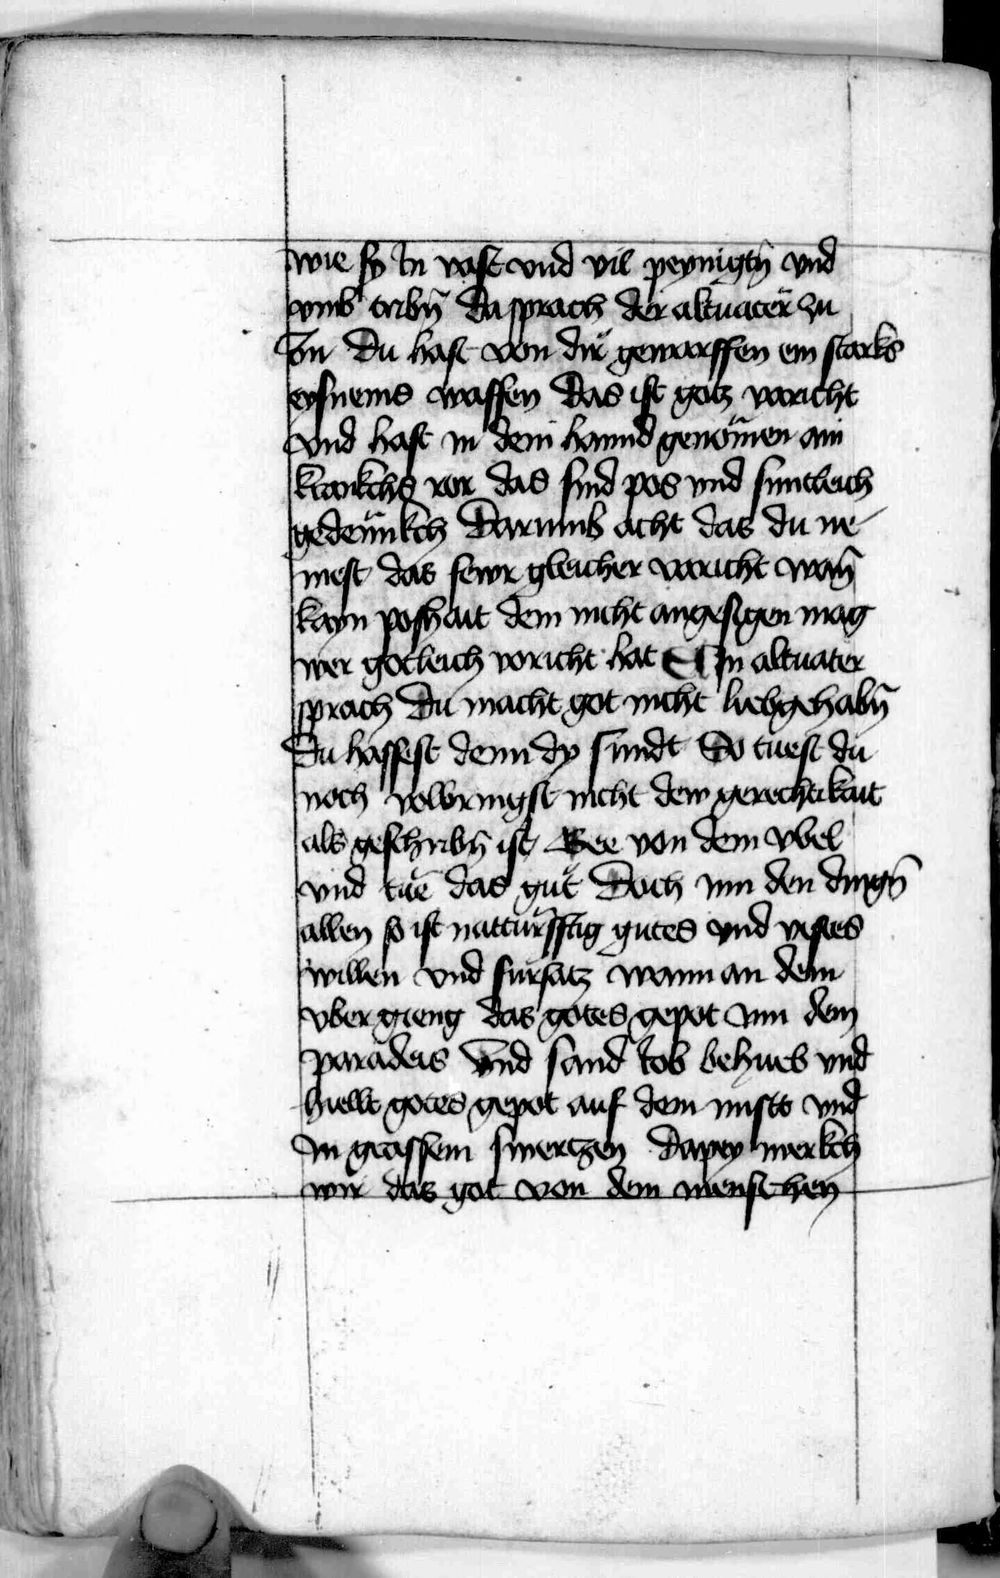 wie sy In vast vnd vil peynigtn̄ vnd
vmb tribn̄ Da sprach der altuater zu
Im Du hast von dir geworffen ein starks
eysneins waffen Das ist gotz voricht
vnd hast in dein hannd genomen ain
krankchs ror das sind pos vnd suntleich
gedenkch Darumb acht das du ne
mest das fewr gleicher voricht wan̄
kayn poshait dem nicht angesigen mag
wer gotleich voricht hat Ein altuater
sprach Du macht got nicht liebgehabn̄
Du hassest denn dy sundt So tuest du
noch volbringst nicht dew gerechtikait
als geschribn̄ ist Kee von dem vbel
vnd tue das gut Doch inn den dingn̄
allen so ist natturfftig gutes vnd vestes
willen vnd fursatz wann an dem
vbergieng das gotes gepot inn dem
paradeis Vnd sand Iob behueb vnd
hiellt gotes gepot auf dem misto vnd
In grossem smertzen Dapey merkch
wir das got von dem menschen